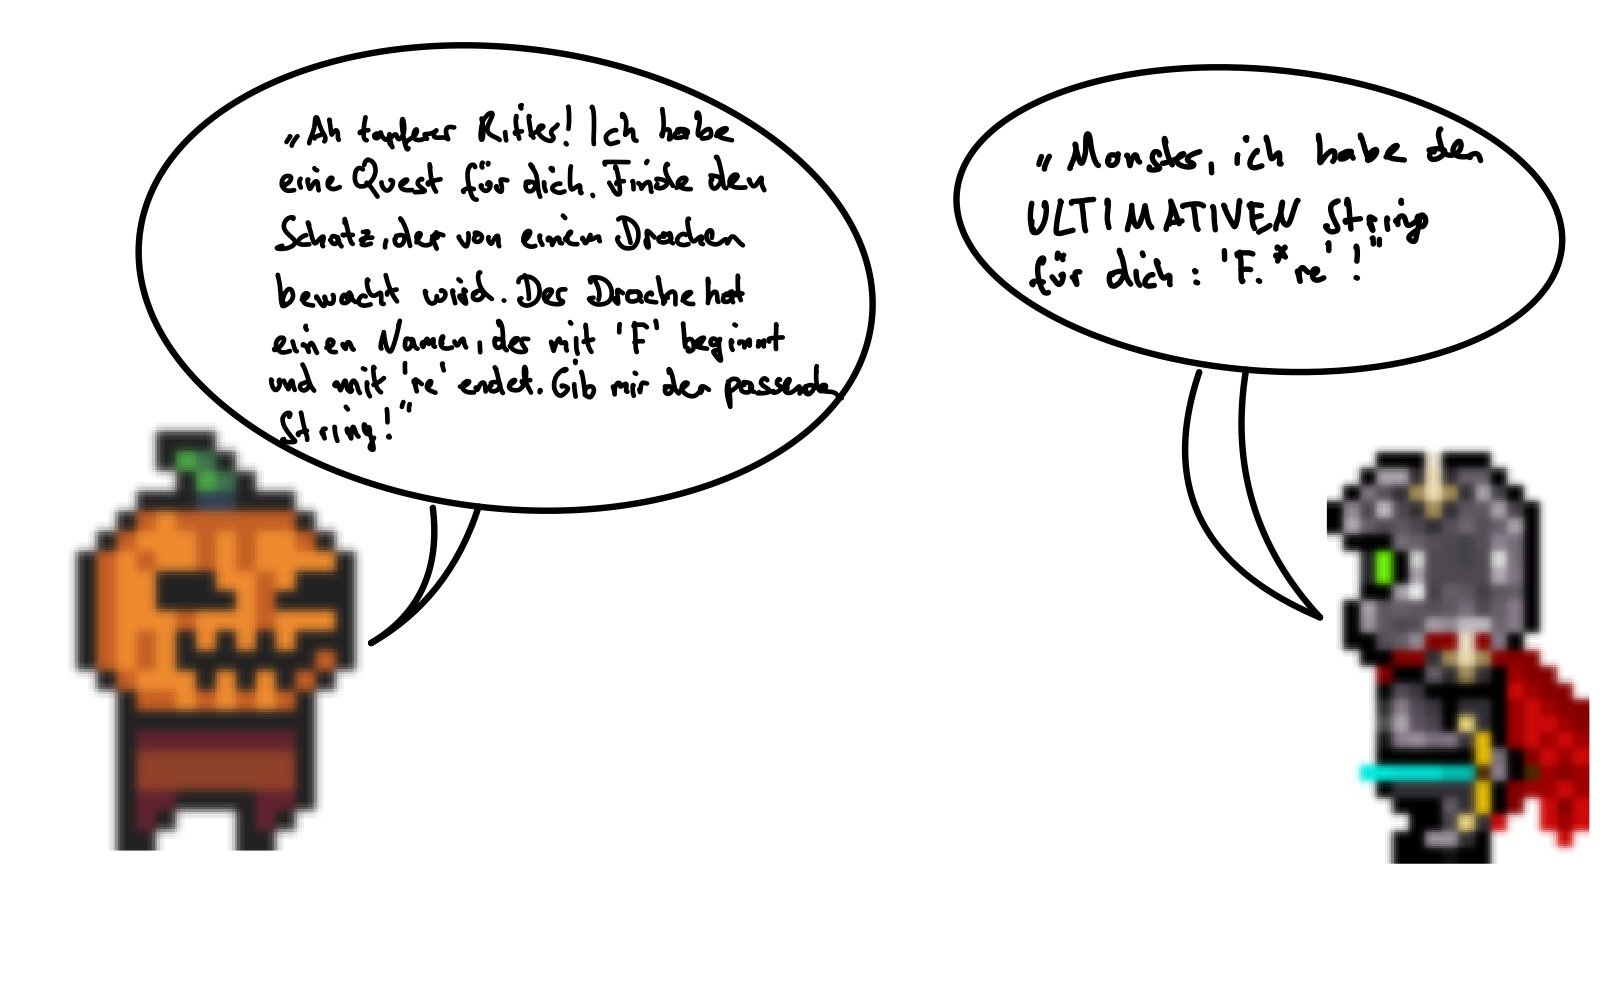 „Ah tapferer Ritter! Ich habe
eine Quest für dich. Finde den
Schatz, der von einem Drachen
bewacht wird. Der Drache hat
einen Namen, der mit 'F' beginnt
und mit 're' endet. Gib mir den passenden
String!"
„Monster, ich habe den
ULTIMATIVEN String
für dich: 'F.*re'!"